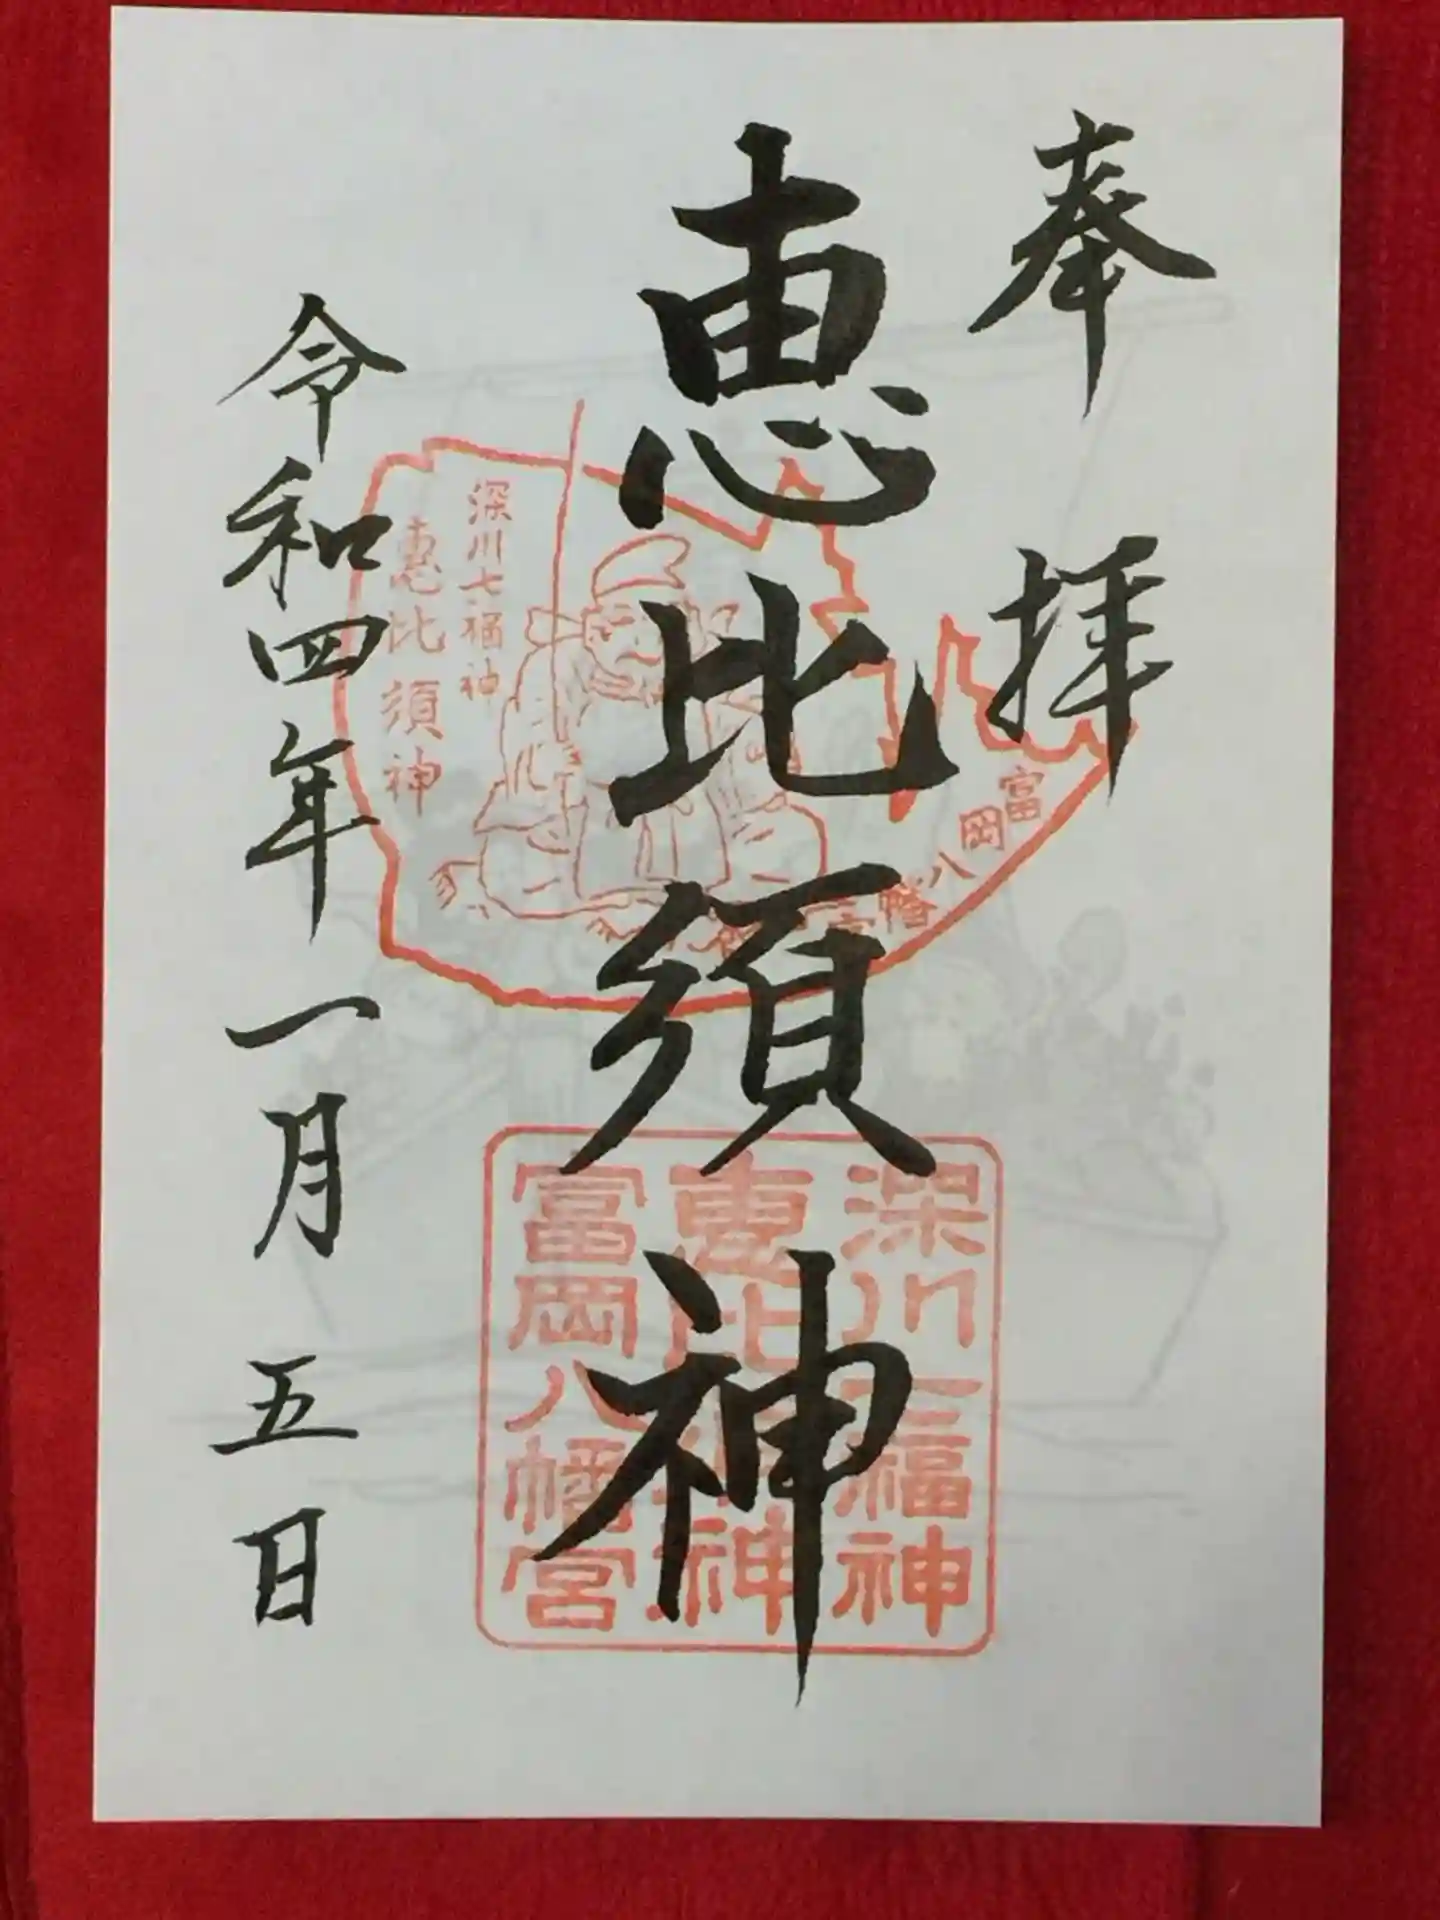 奉拝
恵比須神
令和四年一月五日
深川七福神
恵比須神
富岡八幡宮
深川七福神
恵比須神
富岡八幡宮